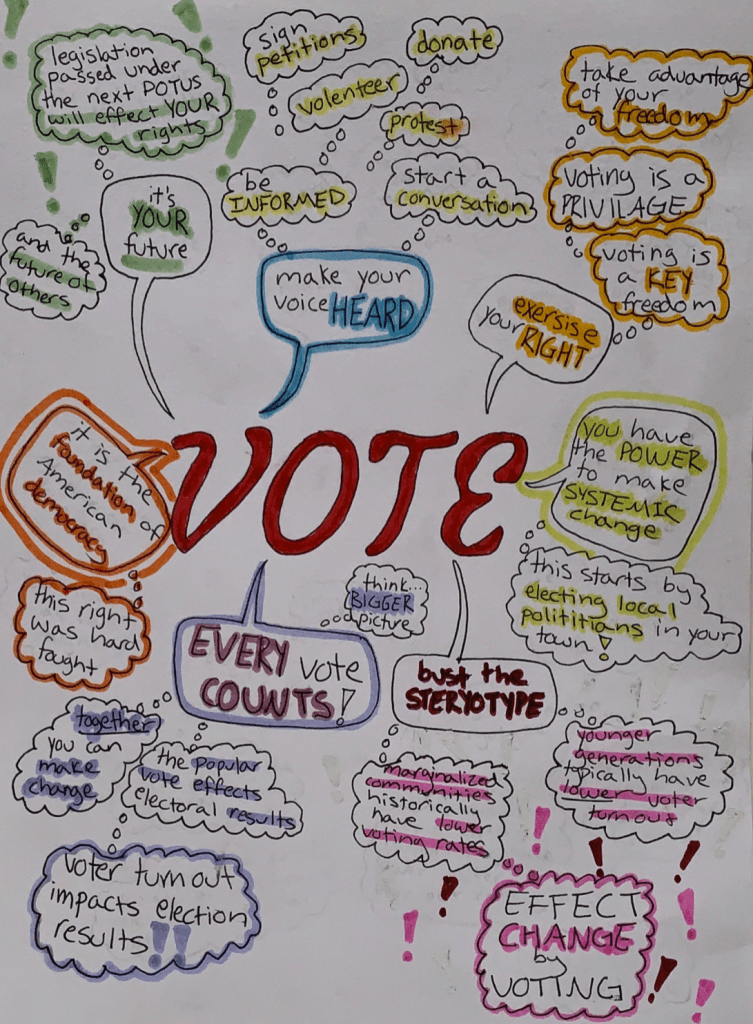 legislation
passed under
the next POTUS
will effect YOUR
rights
it's
YOUR
future
and the
future of
others
sign
petitions
volenteer
donate
protest
be
INFORMED
start a
conversation
make your
voice HEARD
take advantage
of your
freedom
voting is a
PRIVILAGE
voting is
a KEY
freedom
exersise
your RIGHT
it is the
foundation of
American
democracy
this right
was hard
fought
VOTE
you have
the POWER
to make
SYSTEMIC
change
this starts by
electing local
polititians in your
town!
EVERY vote
COUNTS!
think...
BIGGER
picture
together
you can
make
change
the popular
vote effects
electoral results
voter turnout
impacts election
results!!
bust the
STERYOTYPE
marginalized
communities
historically
have lower
voting rates
younger
generations
typically have
lower voter
turnout
EFFECT
CHANGE
by
VOTING